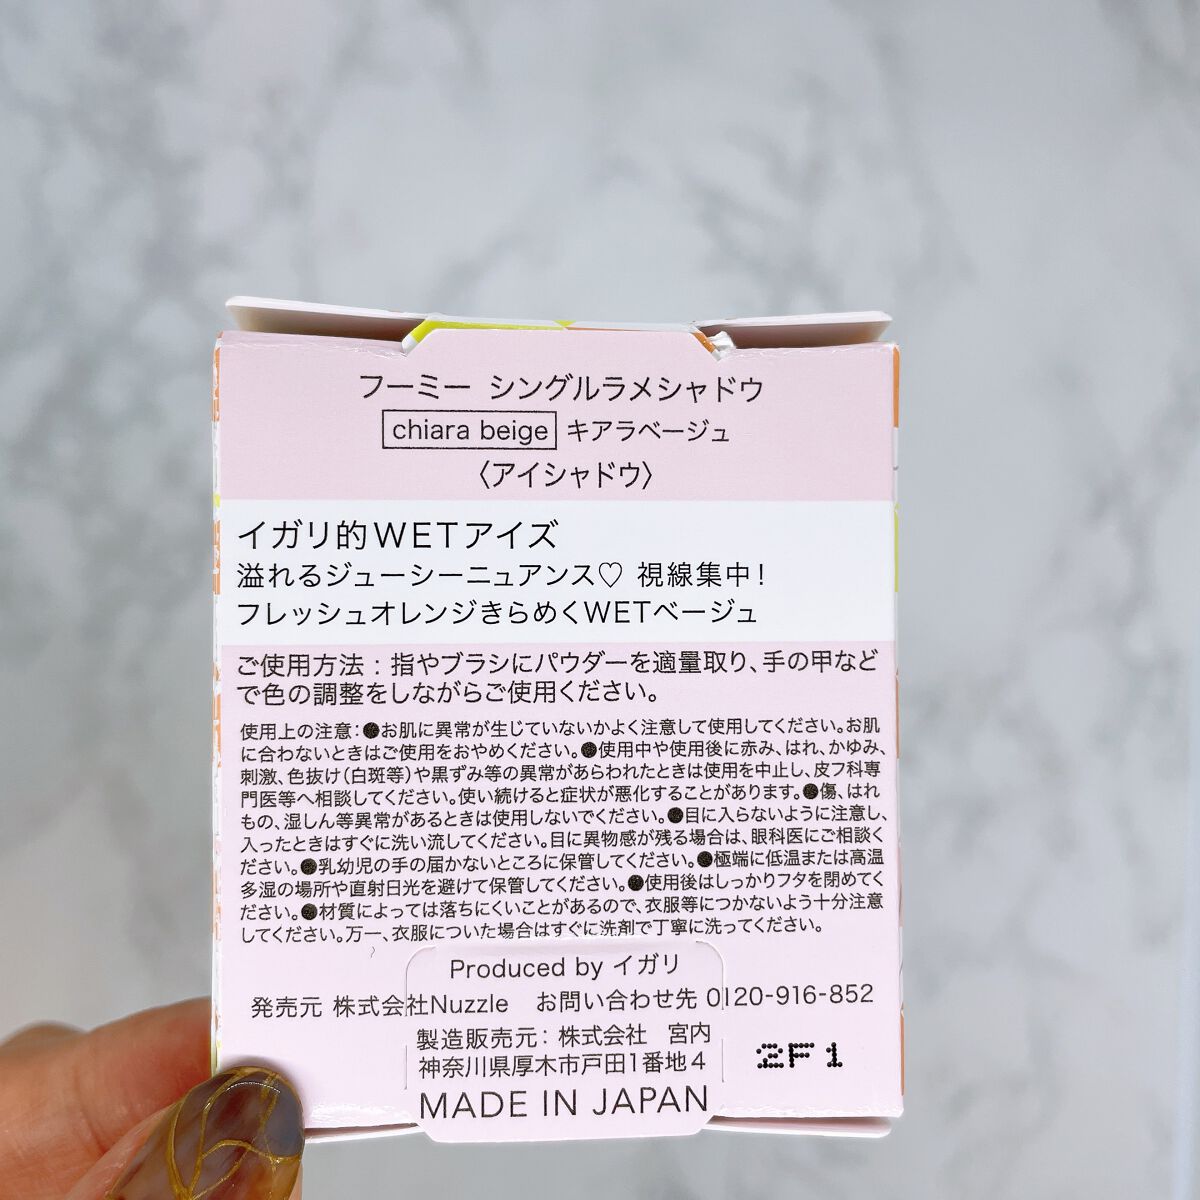 フーミー シングルラメシャドウ
chiara beige キアラベージュ
〈アイシャドウ〉
イガリ的WETアイズ
溢れるジューシーニュアンス♡ 視線集中!
フレッシュオレンジきらめくWETベージュ
ご使用方法:指やブラシにパウダーを適量取り、手の甲など
で色の調整をしながらご使用ください。
使用上の注意:●お肌に異常が生じていないかよく注意して使用してください。お肌
に合わないときはご使用をおやめください。●使用中や使用後に赤み、はれ、かゆみ、
刺激、色抜け(白斑等)や黒ずみ等の異常があらわれたときは使用を中止し、皮フ科専
門医等へ相談してください。使い続けると症状が悪化することがあります。●傷、はれ
もの、湿しん等異常があるときは使用しないでください。●目に入らないように注意し、
入ったときはすぐに洗い流してください。目に異物感が残る場合は、眼科医にご相談く
ださい。●乳幼児の手の届かないところに保管してください。●極端に低温または高温
多湿の場所や直射日光を避けて保管してください。●使用後はしっかりフタを閉めてく
ださい。●材質によっては落ちにくいことがあるので、衣服等につかないよう十分注意
してください。万一、衣服についた場合はすぐに洗剤で丁寧に洗ってください。
Produced by イガリ
発売元 株式会社Nuzzle お問い合わせ先 0120-916-852
製造販売元:株式会社 宮内
神奈川県厚木市戸田1番地4
2F1
MADE IN JAPAN